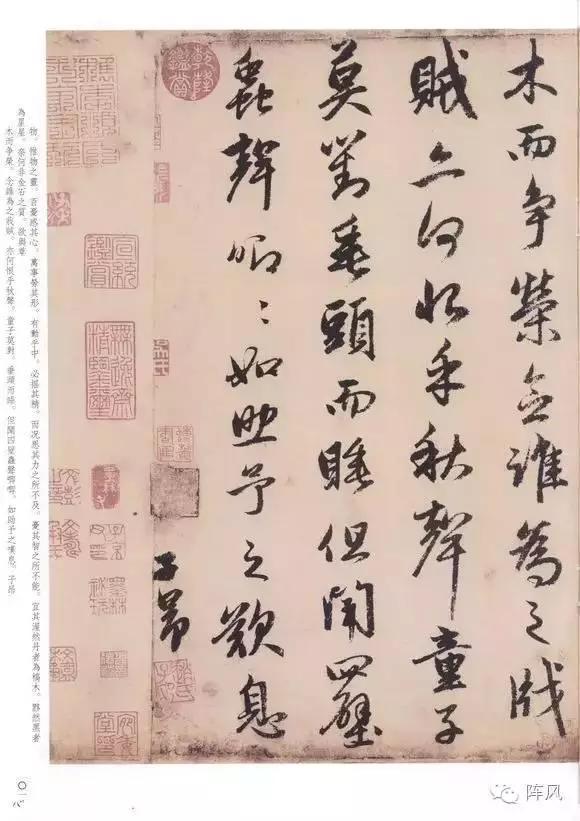 木而争榮念誰為之戕
賊亦何恨乎秋聲童子
莫對垂頭而睡但聞四壁
蟲聲唧〻如助予之歎息
子昂
乾隆鑑賞
宣統鑑賞
無逸齋精鑒璽
物。惟物之靈。百憂感其心。萬事勞其形。有動乎中。必搖其精。而況思其力之所不及。憂其智之所不能。宜其渥然丹者為槁木。黟然黑者
為星星。奈何非金石之質。欲與草
木而爭榮。念誰為之戕賊。亦何恨乎秋聲。童子莫對。垂頭而睡。但聞四壁蟲聲唧唧。如助予之嘆息。子昂
〇一八
阵风